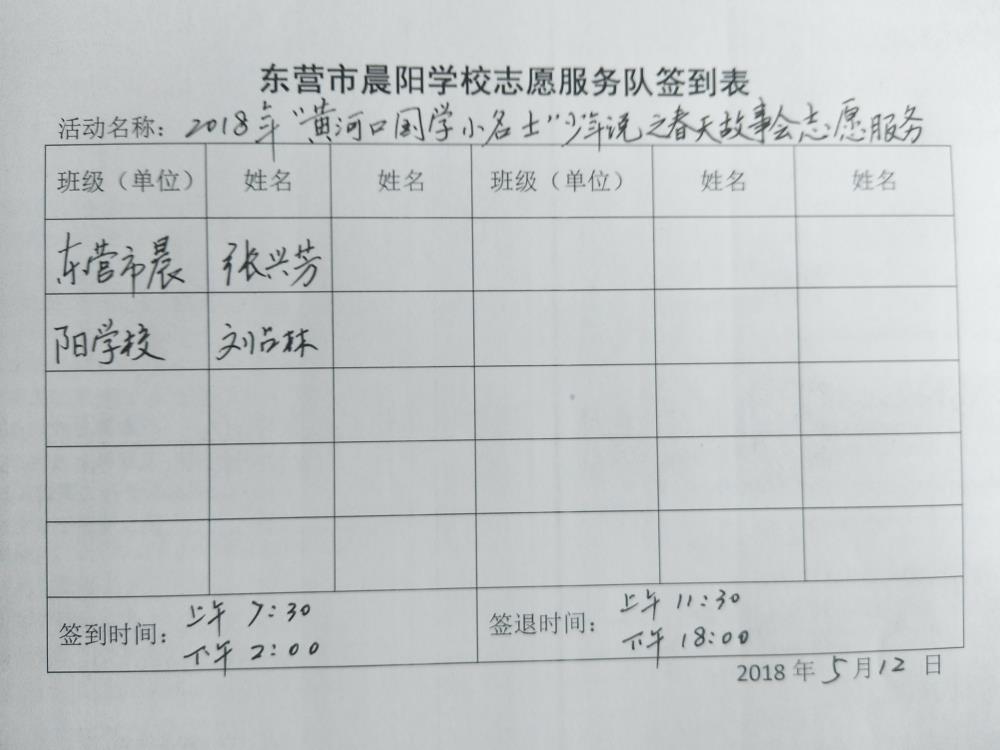 东营市晨阳学校志愿服务队签到表
活动名称：2018年“黄河口国学小名士”少年说之春天故事会志愿服务
班级（单位） 姓名 姓名 班级（单位） 姓名 姓名
东营市晨 张兴芳
阳学校 刘占林
签到时间： 上午 7:30
下午 2:00
签退时间： 上午 11:30
下午 18:00
2018 年 5 月 12 日